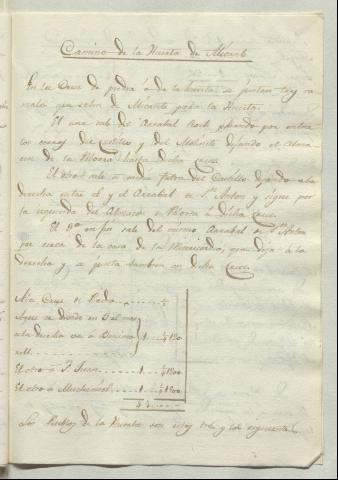 Camino de la Huerta de Alicante
En la Cruz de piedra ó de la huerta se juntan tres ra
males que salen de Alicante para la Huerta.
El uno sale del Arrabal Roch pasando por entre
los cerros del Castillo y del Molinete dejando el Alma
cen de la Polvora hasta dicha Cruz.
El otro sale a media falda del Castillo dejando a la
derecha entre el y el Arrabal de Sn. Anton y sigue por
la izquierda del Almacen de Polvora à dicha Cruz.
El 3º en fin sale del mismo Arrabal de Sn. Anton
por cerca de la casa de la Misericordia, que deja à la
derecha y se junta tambien en dicha Cruz.
A la Cruz de Piedra
Aqui se divide en 3 el
a la derecha va à Benima
1
El otro a S. Juan 1
El otro a Muchamiel 1
Los Pueblos de la Huerta son estos tres y los siguientes